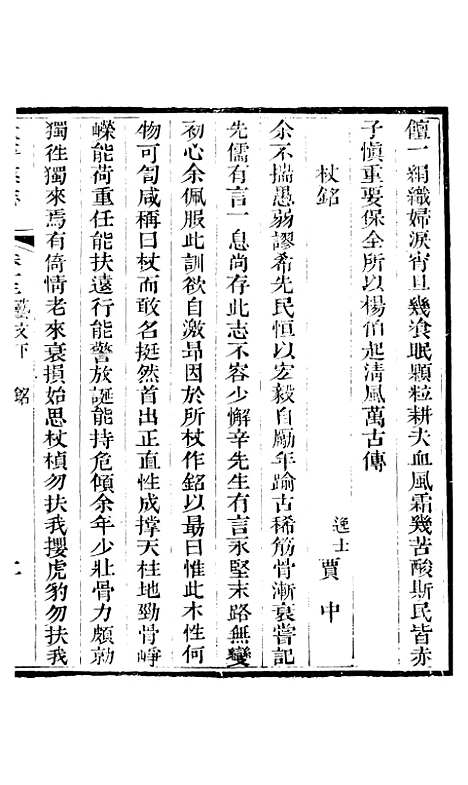 饘一絹織婦淚宵旦幾飡眠顆粒耕夫血風霜幾苦酸斯民皆赤
子慎重要保全所以楊伯起清風萬古傳
杖銘
逸士賈中
余不揣愚弱謬希先民恒以宏毅自勵年踰古稀筋骨漸衰嘗記
先儒有言一息尚存此志不容少懈辛先生有言永堅末路無變
初心余佩服此訓欲自激昂因於所杖作銘以勗曰惟此木性何
物可匄咸稱曰杖而敢名挺然首出正直性成撑天柱地勁骨崢
嶸能荷重任能扶遠行能警放誕能持危傾余年少壯骨力頗勍
獨徃獨來焉有倚情老來衰損始思杖楨勿扶我攖虎豹勿扶我
藝文下 銘